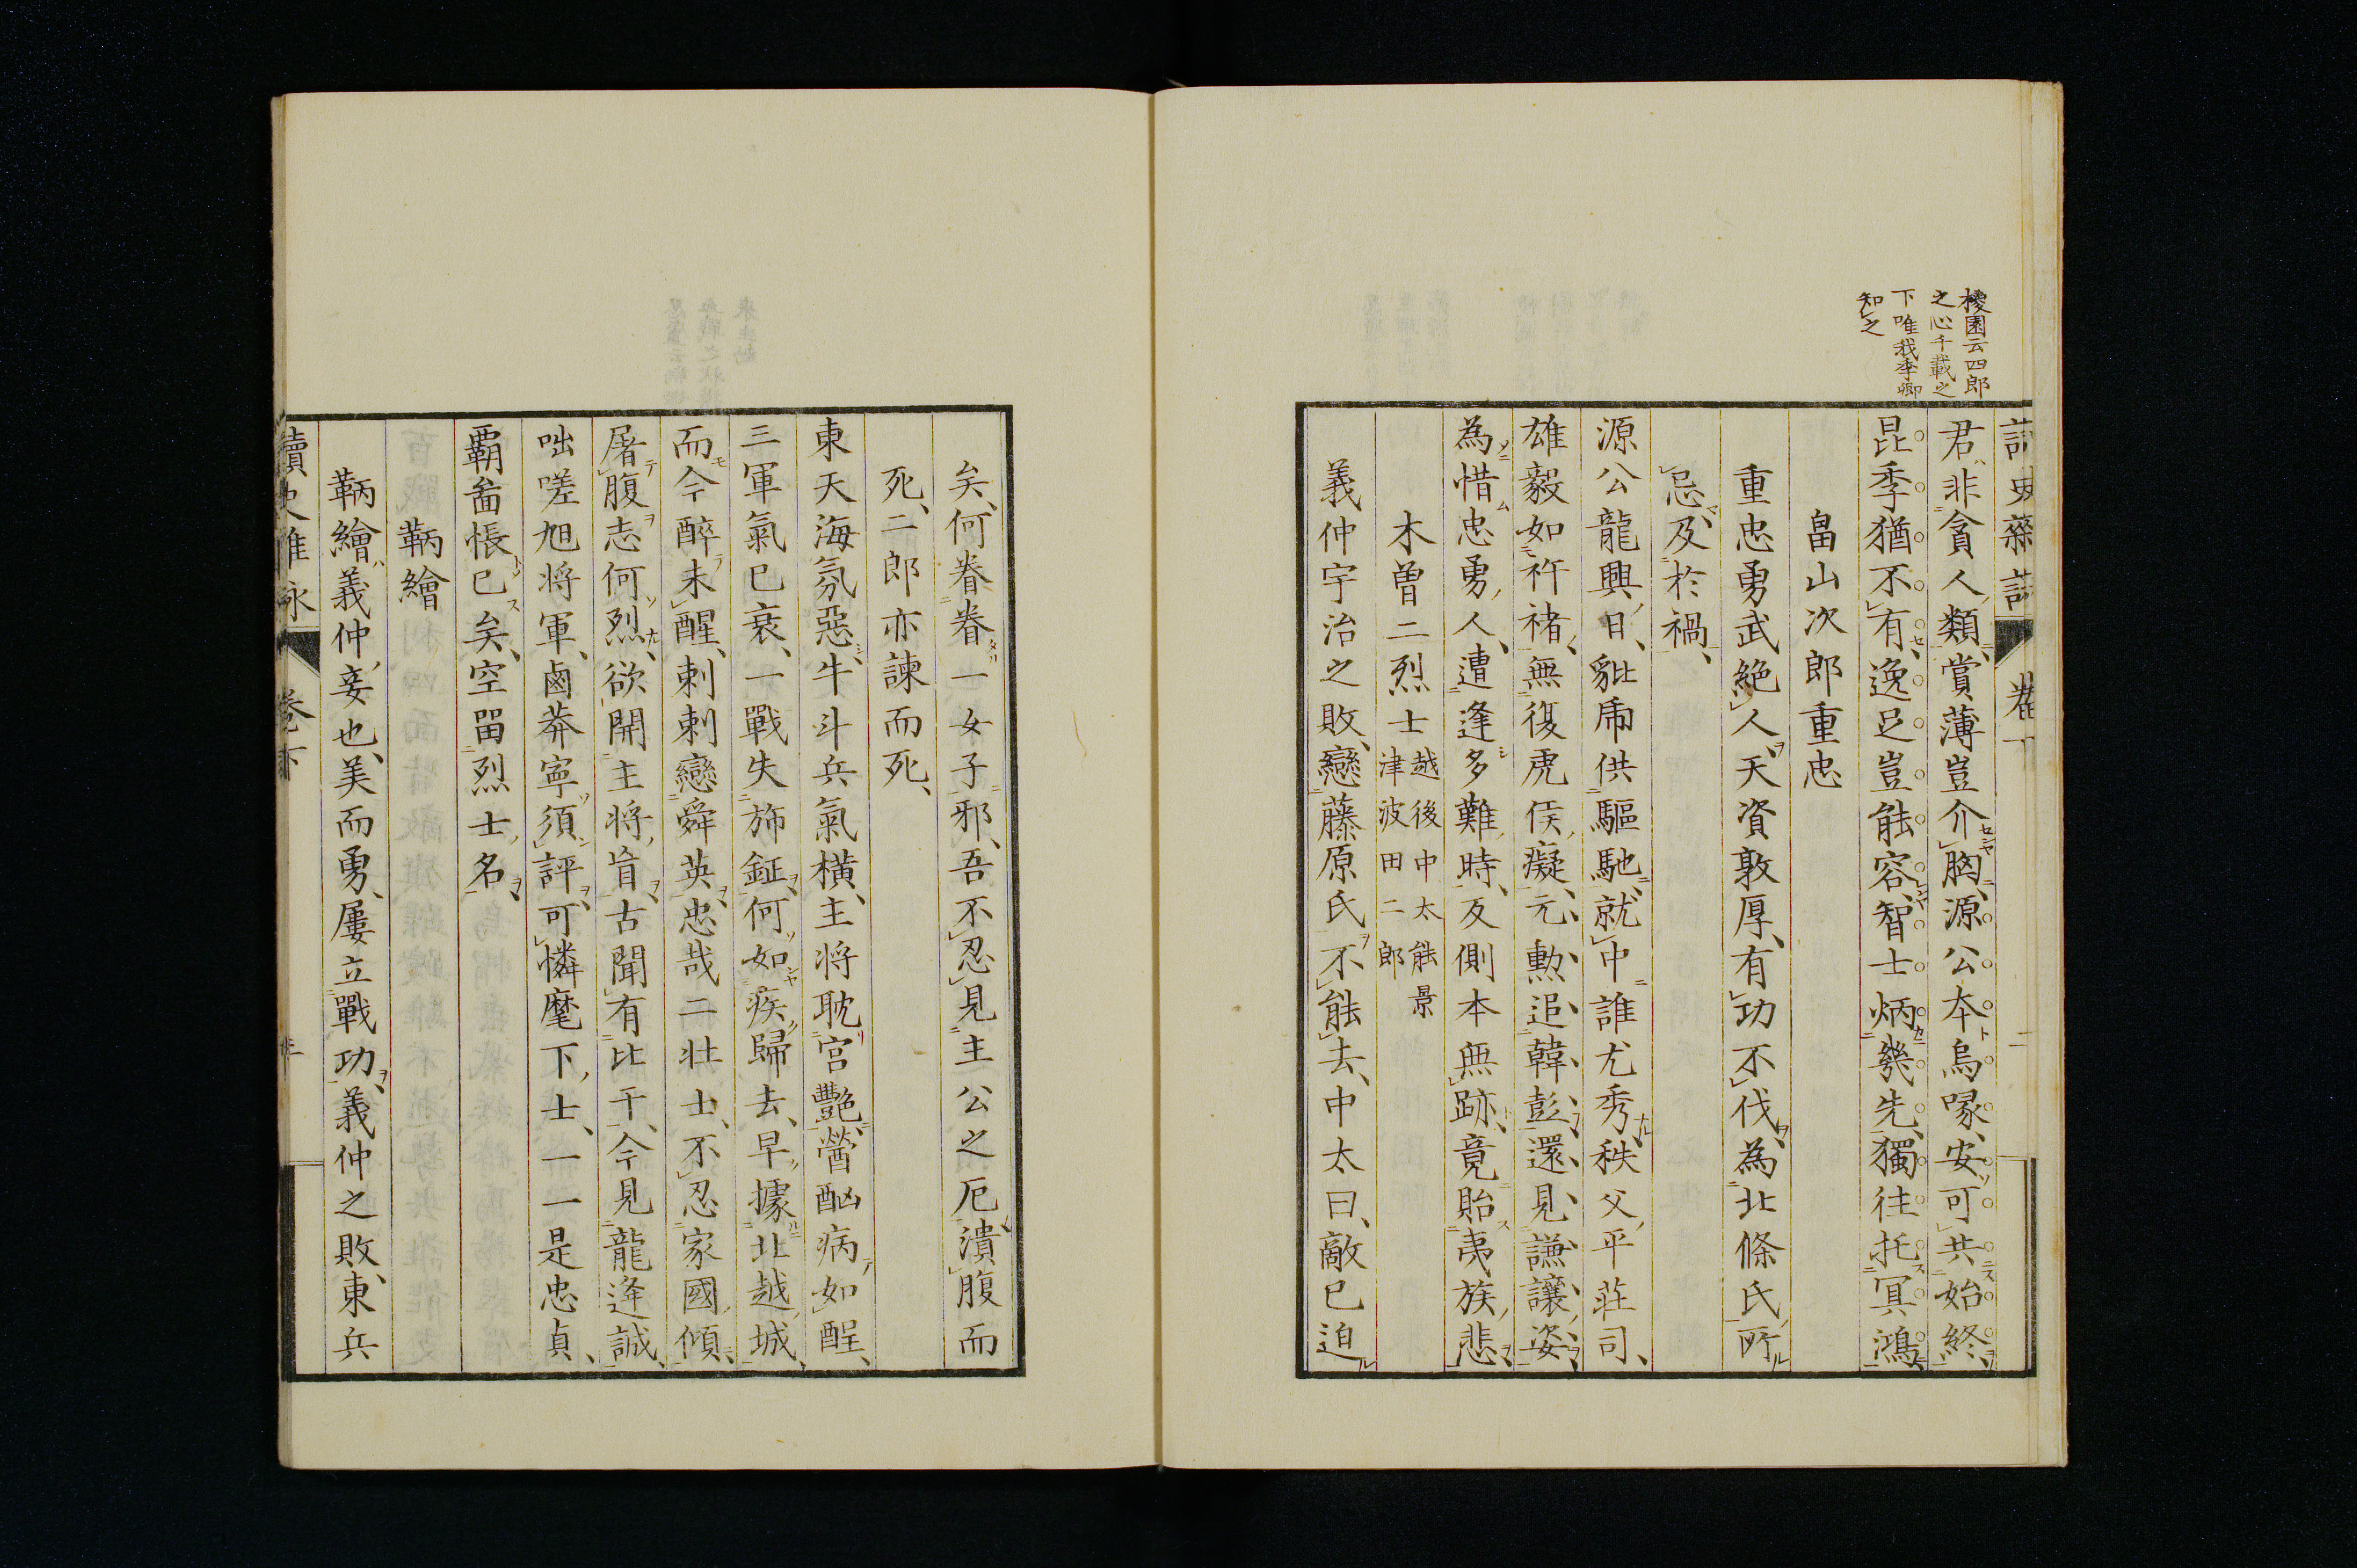 櫻園云四郎
之心千載之
下唯我李卿
知之
君非貪人類賞薄豈介胸源公本烏喙安可共始終
昆季猶不有逸足豈能容智士炳幾先獨往托冥鴻
畠山次郎重忠
重忠勇武絶人天資敦厚有功不伐為北條氏所
忌及於禍
源公龍興日貔虎供驅馳就中誰尤秀秩父平莊司
雄毅如許褚無復虎侯癡元勲追韓彭還見謙讓姿
為惜忠勇人遭逢多難時反側本無跡竟貽夷族悲
木曽二烈士 越後中太能景
津波田二郎
義仲宇治之敗戀藤原氏不能去中太曰敵已迫
矣何眷眷一女子邪吾不忍見主公之厄潰腹而
死二郎亦諫而死
東天海氛惡牛斗兵氣橫主将耽宮艶醟酗病如酲
三軍氣已衰一戰失旆鉦何如疾歸去早據北越城
而今醉未醒剌剌戀舜英忠哉二壯士不忍家國傾
屠腹志何烈欲開主将盲古聞有比干今見龍逢誠
咄嗟旭将軍鹵莽寧須評可憐麾下士一一是忠貞
覇畨悵已矣空留烈士名
鞆繪
鞆繪義仲妾也美而勇屢立戰功義仲之敗東兵
讀史雜詠 卷下